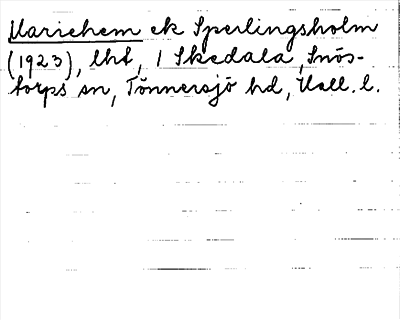 Mariehem ek Sperlingsholm
(1923), lht, 1 Skedala, Snös-
torps sn, Tönnersjö hd, Hall. l.